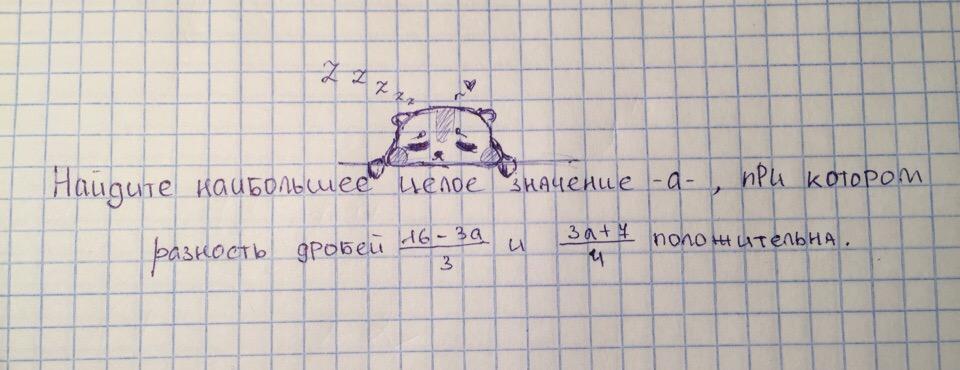 Z z z z z
Найдите наибольшее целое значение -а-, при котором
разность дробей \frac{16-3a}{3} и \frac{3a+7}{4} положительна.